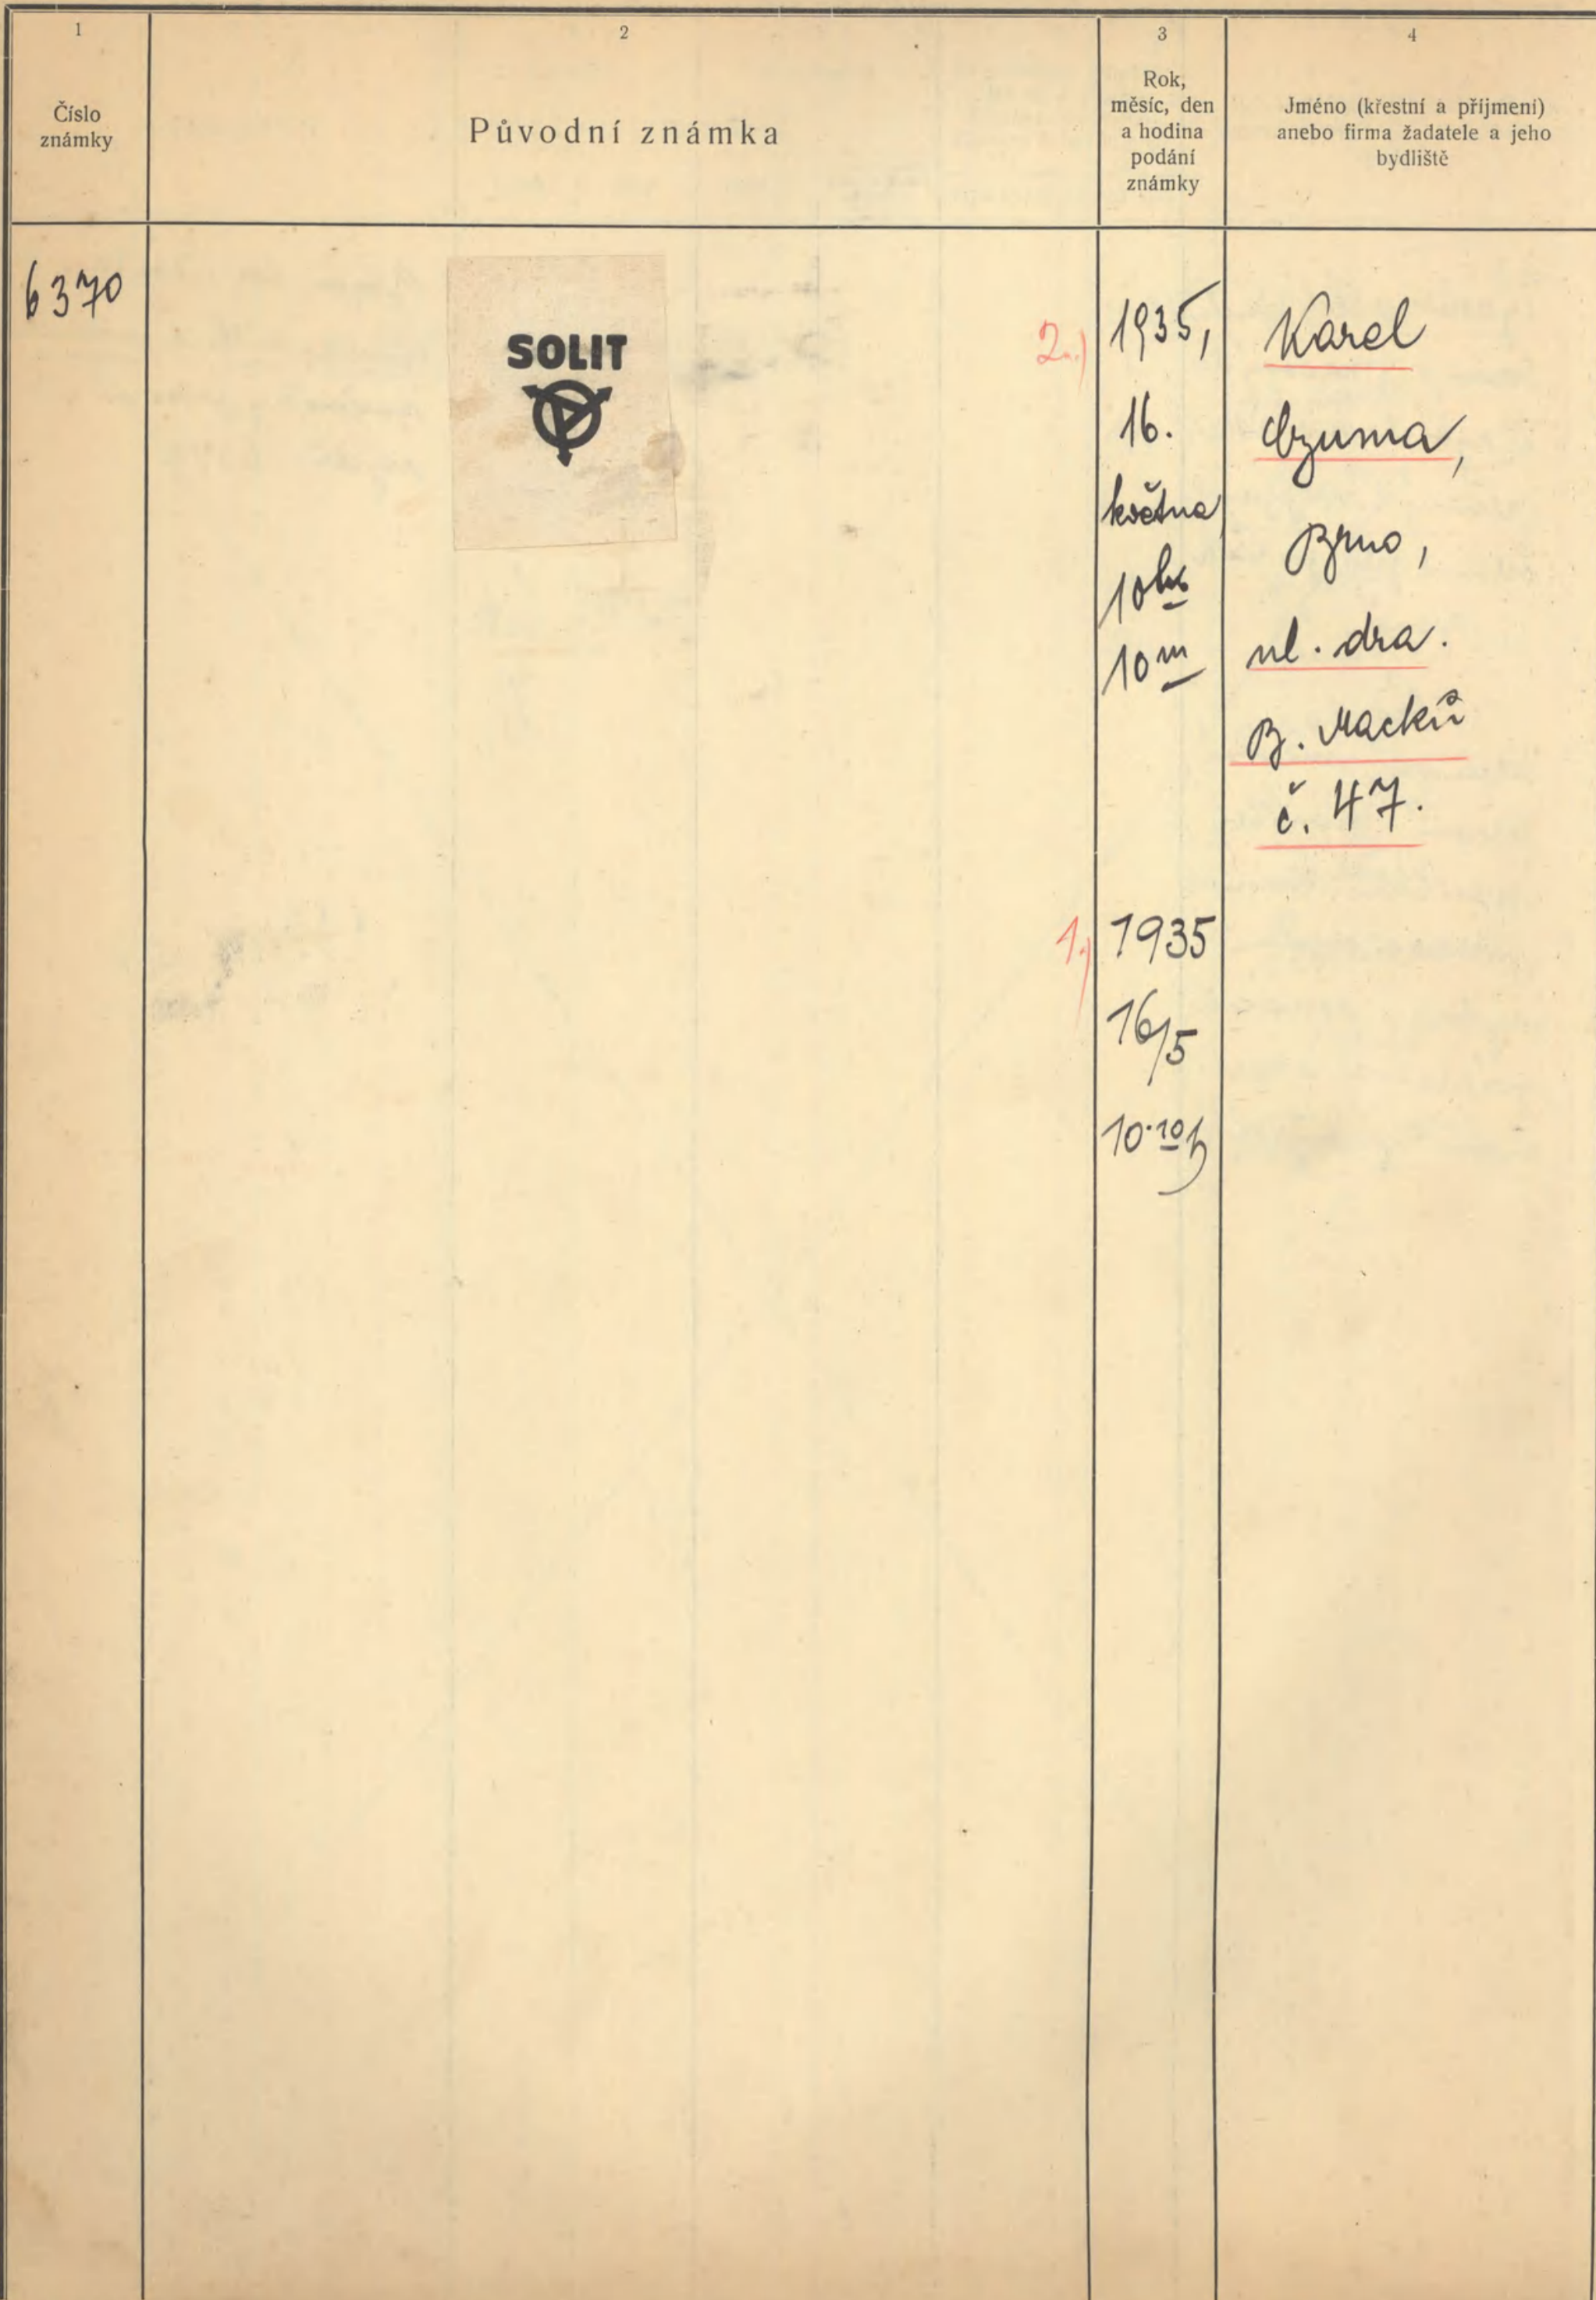 1
Číslo
známky
2
Původní známka
3
Rok,
měsíc, den
a hodina
podání
známky
4
Jméno (křestní a příjmení)
anebo firma žadatele a jeho
bydliště
6370
SOLIT
2.)
1935,
16.
května
10h
10m
Karel
Czuma,
Brno,
ul. dra.
B. Macků
č. 47.
1.)
1935
16/5
10·10h